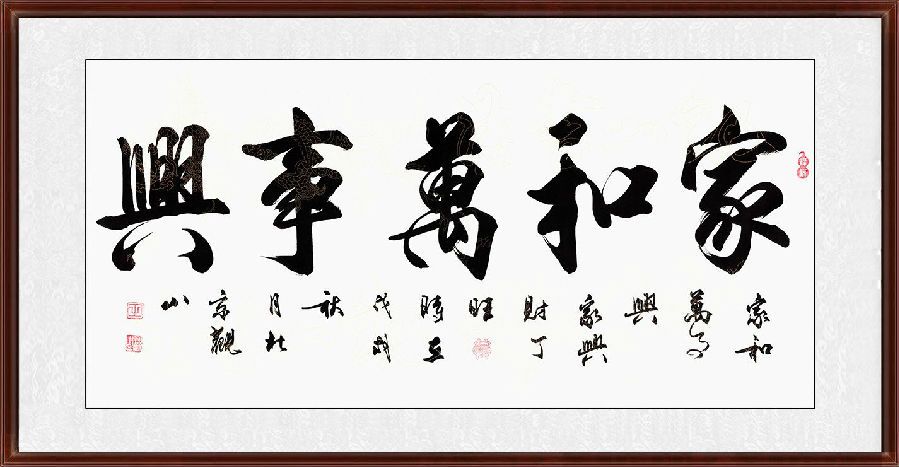 家和萬事興
家和
萬事
興
家興
財丁
旺
時在
戊戌
秋
月北
京觀
山